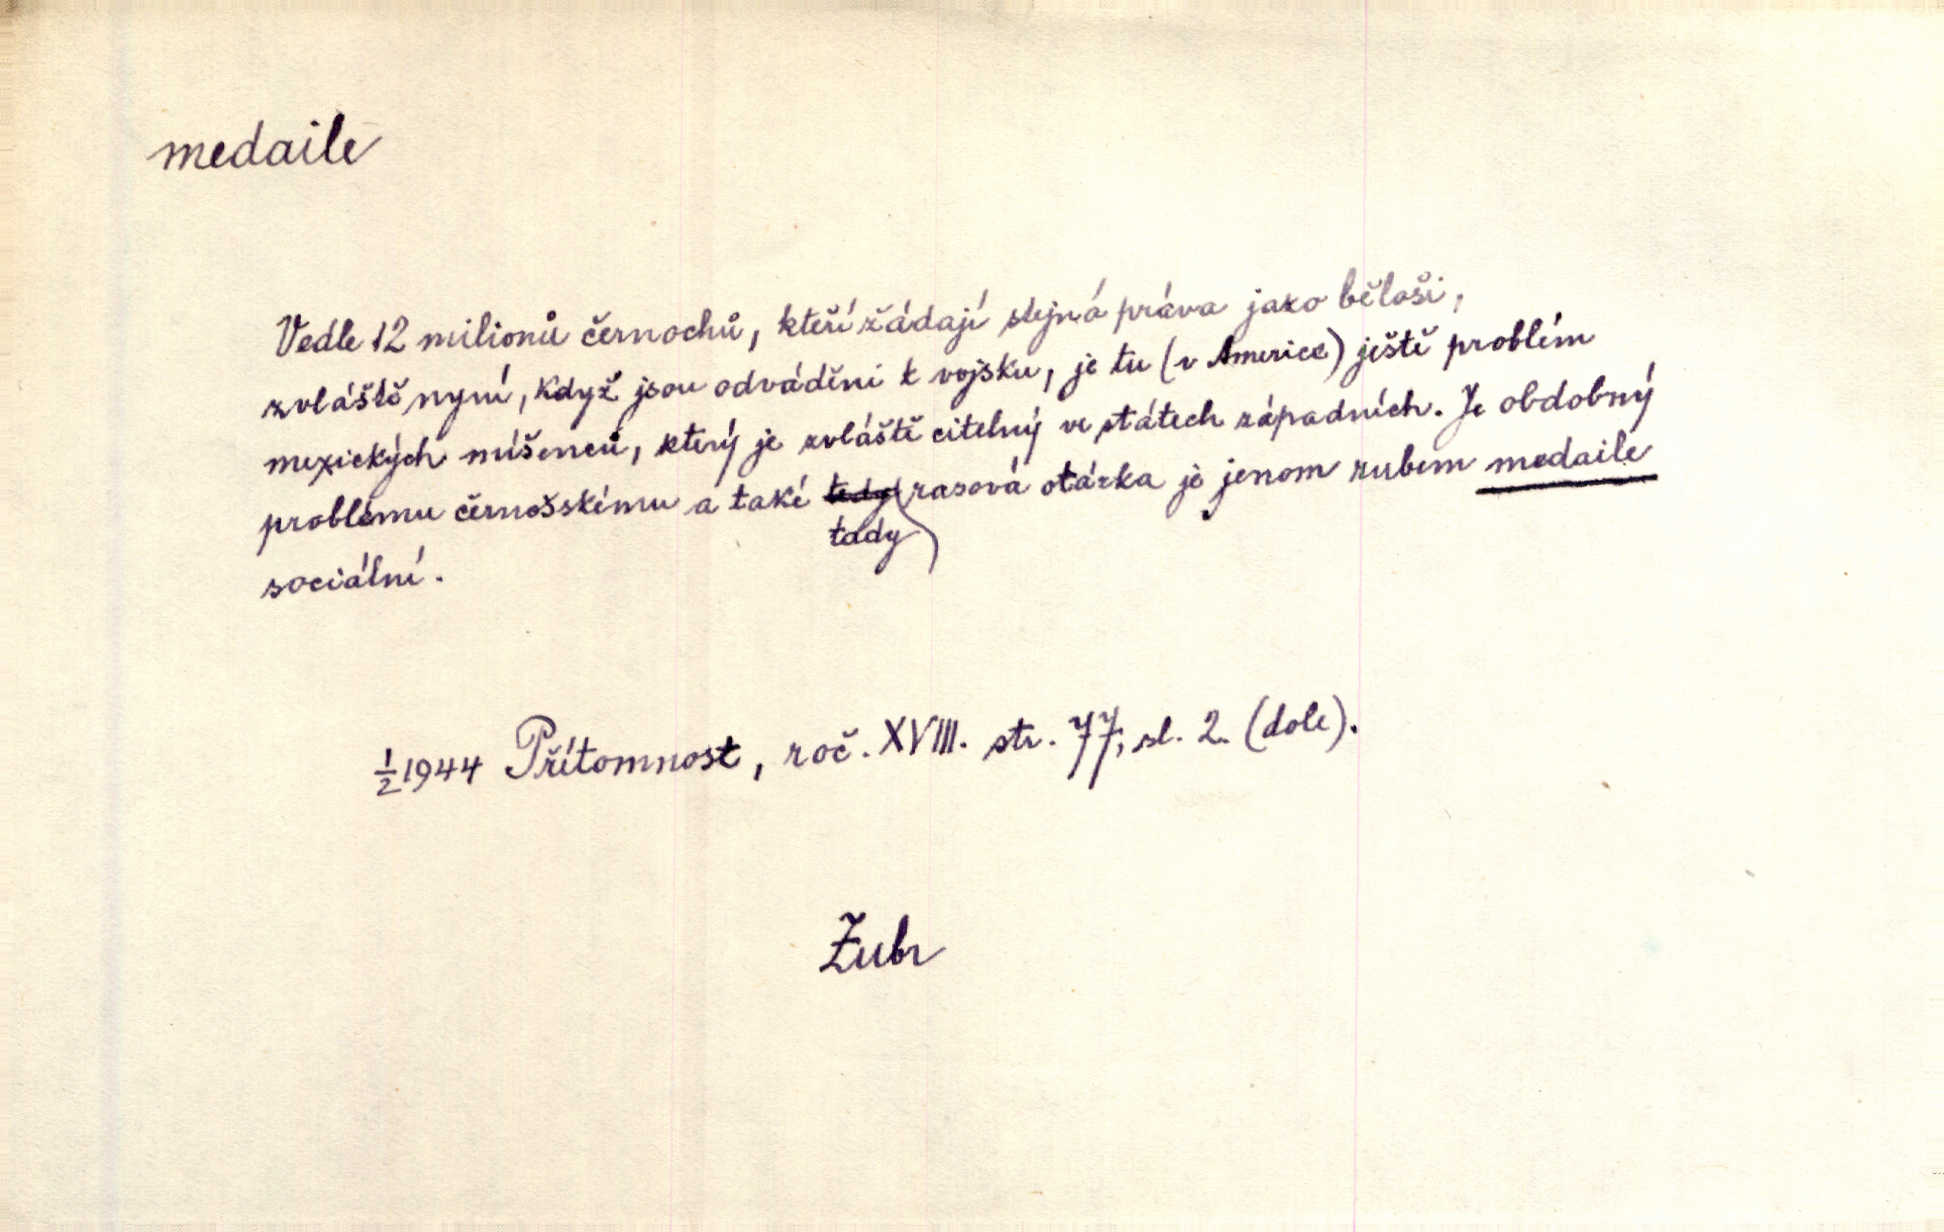 medaile
Vedle 12 milionů černochů, kteří žádají stejná práva jako běloši,
zvláště nyní, když jsou odváděni k vojsku, je tu (v Americe) ještě problém
mexických míšenců, který je zvláště citelný ve státech západních. Je obdobný
problému černošskému a také tedy rasová otázka je jenom rubem medaile
tady
sociální.
1/2 1944 Přítomnost, roč. XVIII. str. 77, sl. 2. (dole).
Zubr